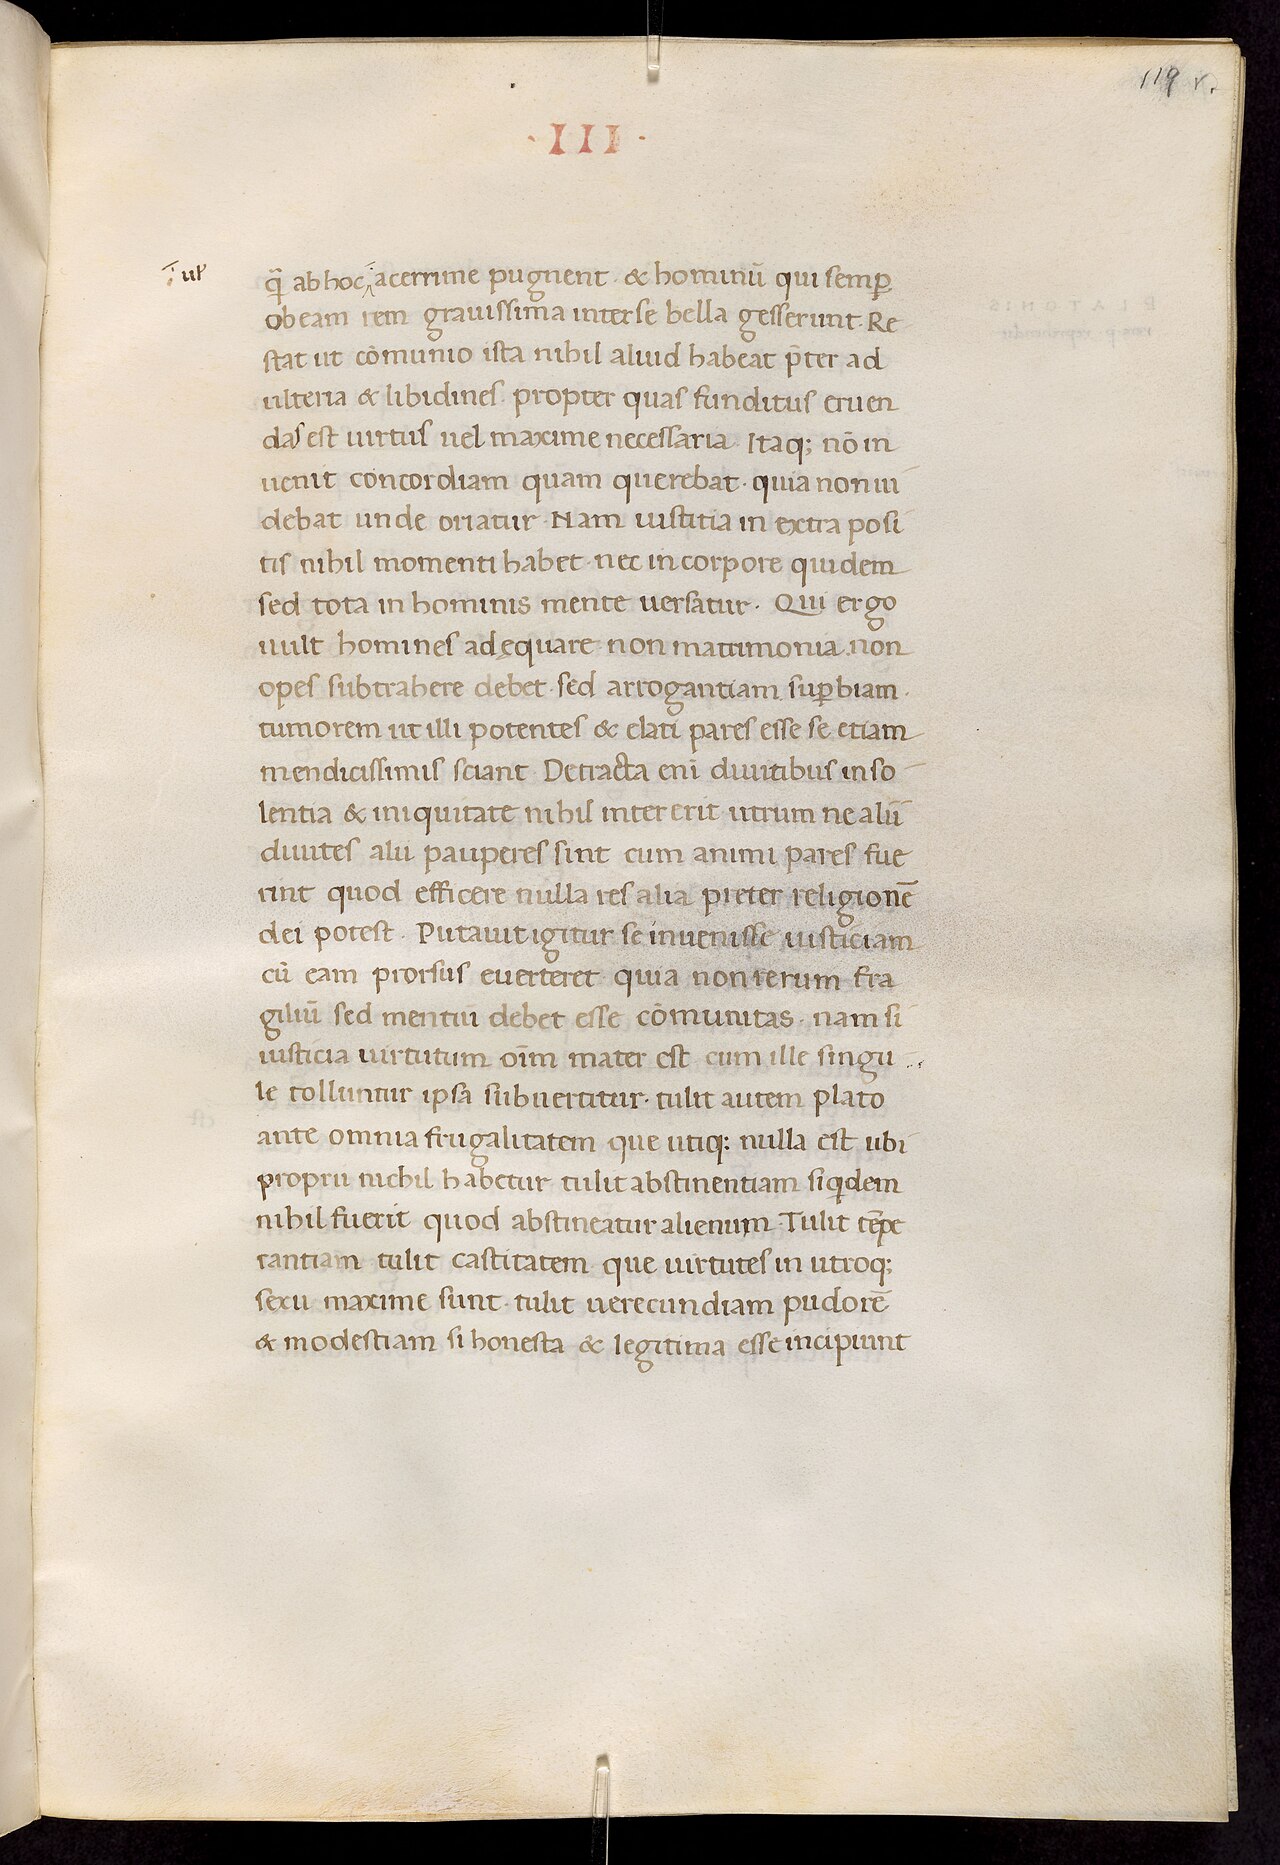 119 r.
· III ·
ul̄
q̄ ab hoc acerrime pugnent · & hominū qui semꝑ
ob eam rem grauissima inter se bella gesserunt · Re
stat ut cōmunio ista nihil aliud habeat p̄ter ad
ulteria & libidines · propter quas funditus eruen
das est uirtus uel maxime necessaria · Itaq; nō in
uenit concordiam quam querebat · quia non ui
debat unde oriatur · Nam iustitia in extra posi
tis nihil momenti habet · nec in corpore quidem
sed tota in hominis mente uersatur · Qui ergo
uult homines adęquare · non matrimonia · non
opes subtrahere debet · sed arrogantiam suꝑbiam ·
tumorem ut illi potentes & elati pares esse se etiam
mendicissimis sciant · Detracta enī diuitibus inso
lentia & iniquitate nihil intererit utrum ne alii
diuites alii pauperes sint cum animi pares fue
rint quod efficere nulla res alia preter religionē
dei potest · Putauit igitur se inuenisse iusticiam
cū eam prorsus euerteret · quia non rerum fra
giliū sed mentiū debet esse cōmunitas · nam si
iusticia uirtutum oīm mater est cum ille singu
le tolluntur ipsa subuertitur · tulit autem plato
ante omnia frugalitatem que utiq: nulla est ubi
proprii nichil habetur tulit abstinentiam siqdem
nihil fuerit quod abstineatur alienum · Tulit tēpe
rantiam tulit castitatem que uirtutes in utroq;
sexu maxime sunt · tulit uerecundiam pudorē
& modestiam si honesta & legitima esse incipiunt